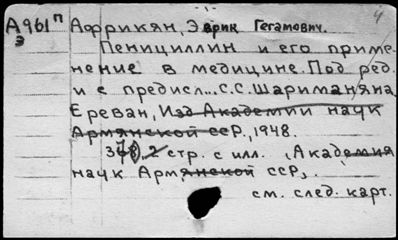 4
А961п Африкян, Эврик Гегамович.
Э Пенициллин и его приме-
нение в медицине. Под ред.
и с предисл... С.С. Шариманяна
Ереван, Изд Академии наук
Армянской ссР, 1948.
2 стр. с илл. (Академия
наук Армянской ссР).
см. след. карт.